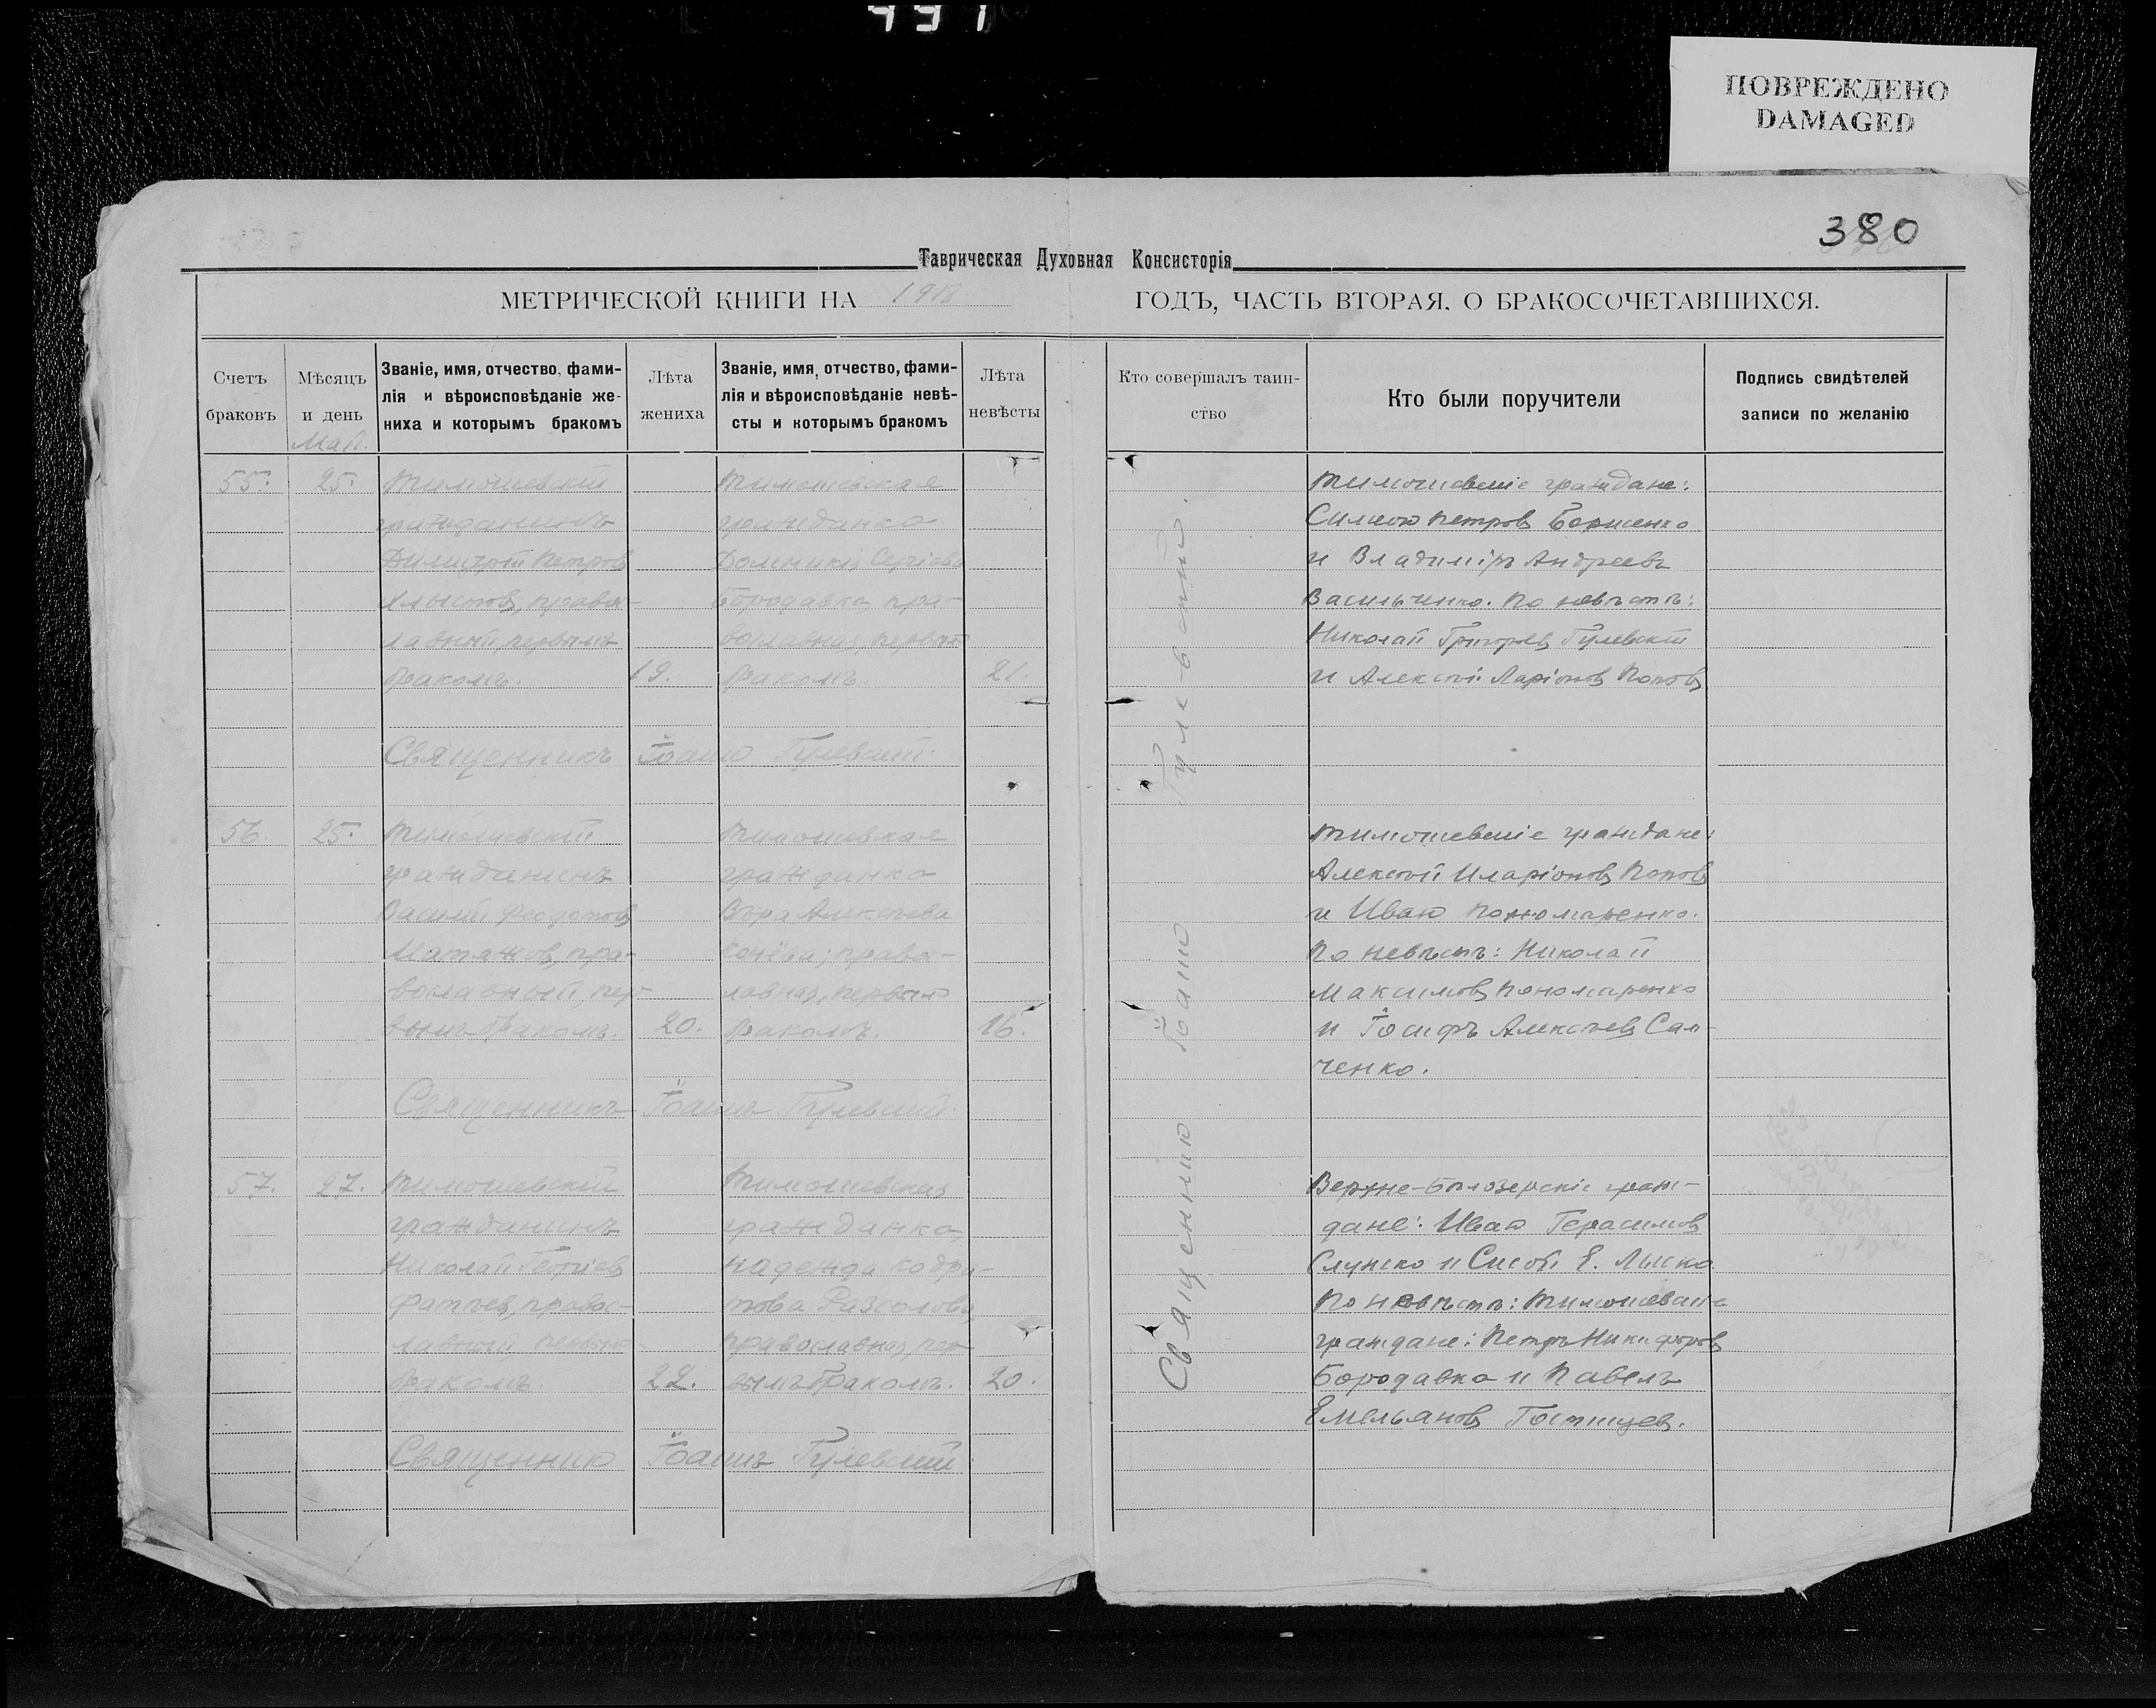 ПОВРЕЖДЕНО
DAMAGED
380
Таврическая Духовная Консисторія
МЕТРИЧЕСКОЙ КНИГИ НА 1918 ГОДЪ, ЧАСТЬ ВТОРАЯ, О БРАКОСОЧЕТАВШИХСЯ.
Счетъ
браковъ
Мѣсяцъ
и день
Май.
Званіе, имя, отчество, фами-
лія и вѣроисповѣданіе же-
ниха и которымъ бракомъ
Лѣта
жениха
Званіе, имя, отчество, фами-
лія и вѣроисповѣданіе невѣ-
сты и которымъ бракомъ
Лѣта
невѣсты
Кто совершалъ таин-
ство
Кто были поручители
Подпись свидѣтелей
записи по желанію
55.
25.
Тимошевскій
гражданинъ
Димитрій Петровъ
правос-
лавный, первымъ
бракомъ.
19.
Тимошевская
гражданка
Домникія Сергіева
Бородавка, пра-
вославная, первымъ
бракомъ.
21.
Тимошевскіе граждане:
Симеонъ Петровъ
и Владиміръ Андреевъ
Васильченко. По невѣстѣ:
Николай Григорьевъ Гулевскій
и Алексѣй Ларіоновъ Поповъ
Священникъ Іоаннъ Гулевскій.
56.
25.
Тимошевскій
гражданинъ
Василій Феодотовъ
пра-
вославный, пер-
вымъ бракомъ.
20.
Тимошевская
гражданка
Вѣра Алексѣева
правос-
лавная, первымъ
бракомъ.
16.
Тимошевскіе граждане:
Алексѣй Иларіоновъ Поповъ
и Иванъ Пономаренко.
По невѣстѣ: Николай
Максимовъ Пономаренко
и Іосифъ Алексѣевъ Сам-
ченко.
Священникъ Іоаннъ Гулевскій.
57.
27.
Тимошевскій
гражданинъ
Николай Георгіевъ
правос-
лавный, первымъ
бракомъ.
22.
Тимошевская
гражданка,
Надежда Кодра-
това
православная, пер-
вымъ бракомъ.
20.
Верхне-Бѣлозерскіе граж-
дане: Иванъ Герасимовъ
и Е. Лыско
По невѣстѣ: Тимошевскіе
граждане: Петръ Никифоровъ
Бородавка и Павелъ
Емельяновъ Гостищев.
Священникъ Іоаннъ Гулевскій
Священникъ Іоаннъ Гулевскій.